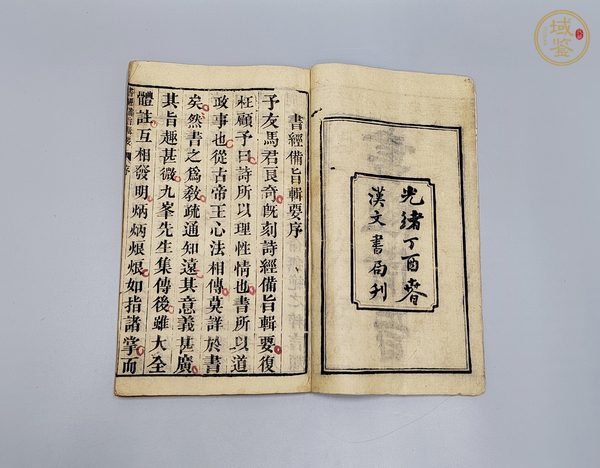 光緒丁酉春
漢文書局刊
書經備旨輯要序
予友馬君良奇既刻詩經備旨輯要復
枉顧予曰詩所以理性情也書所以道
政事也從古帝王心法相傳莫詳於書
矣然書之為教疏通知遠其意義甚廣
其旨趣甚微九峯先生集傳後雖大全
體註互相發明炳炳烺烺如指諸掌而
域鑒